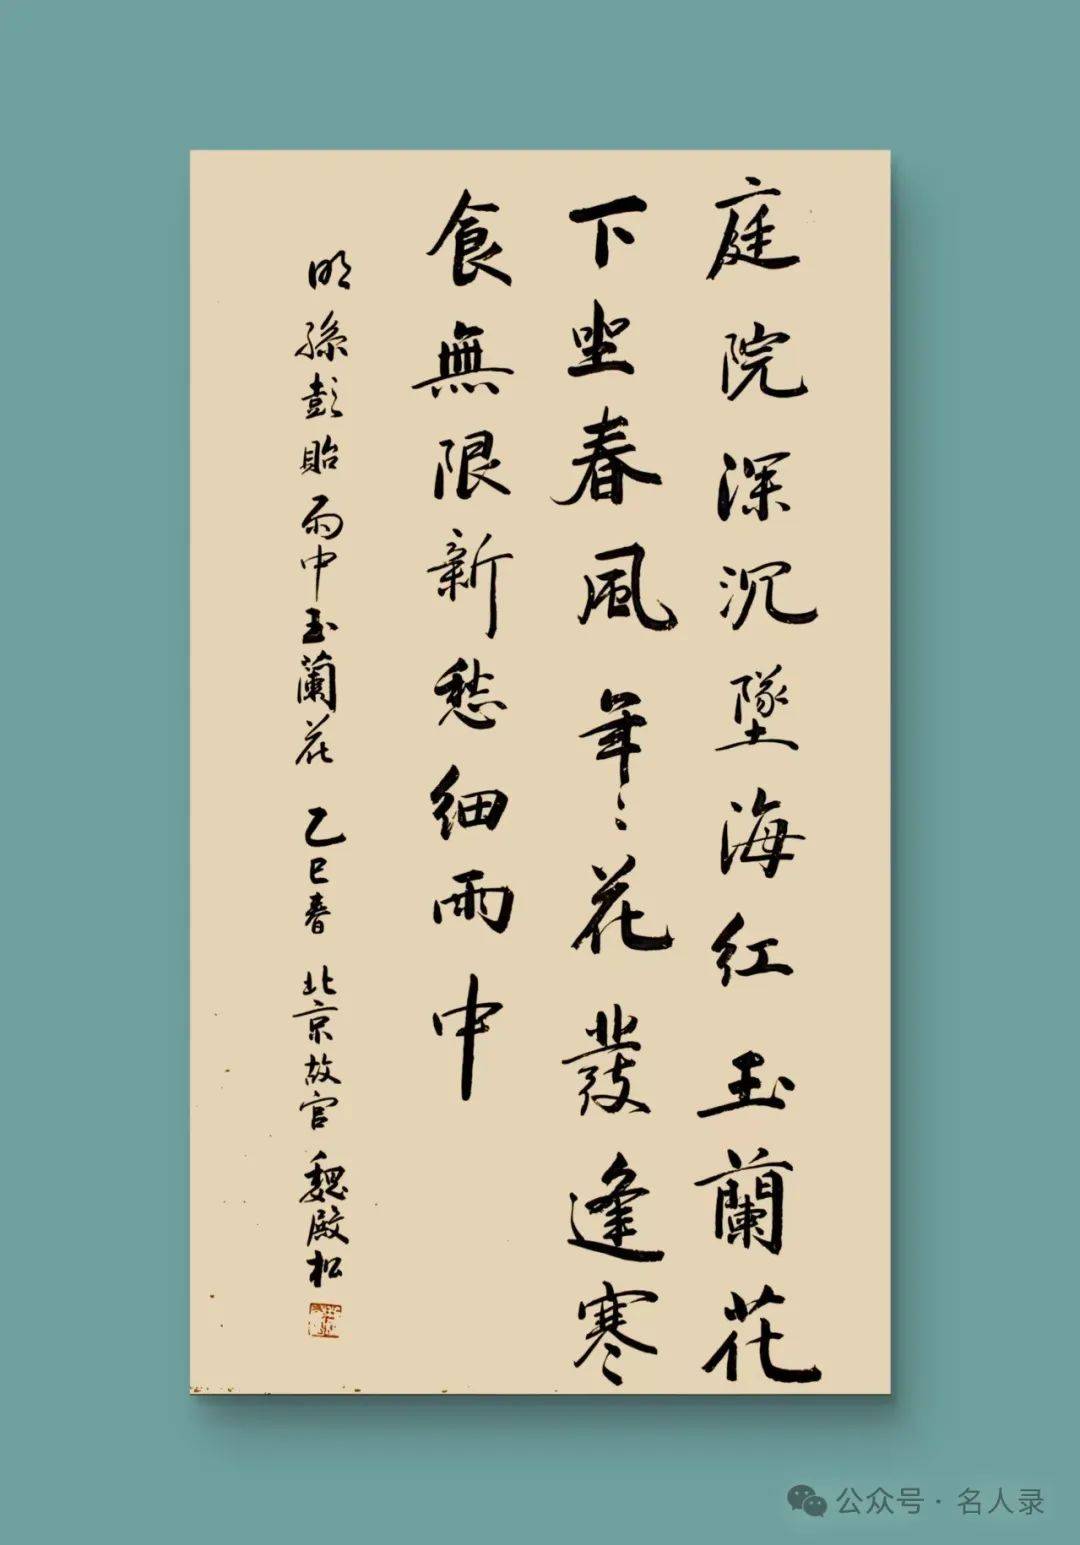 庭院深沉墜海紅玉蘭花
下坐春風年〻花發逢寒
食無限新愁細雨中
明孫彭貽雨中玉蘭花 乙巳春 北京故宮 魏殿松
公众号·名人录